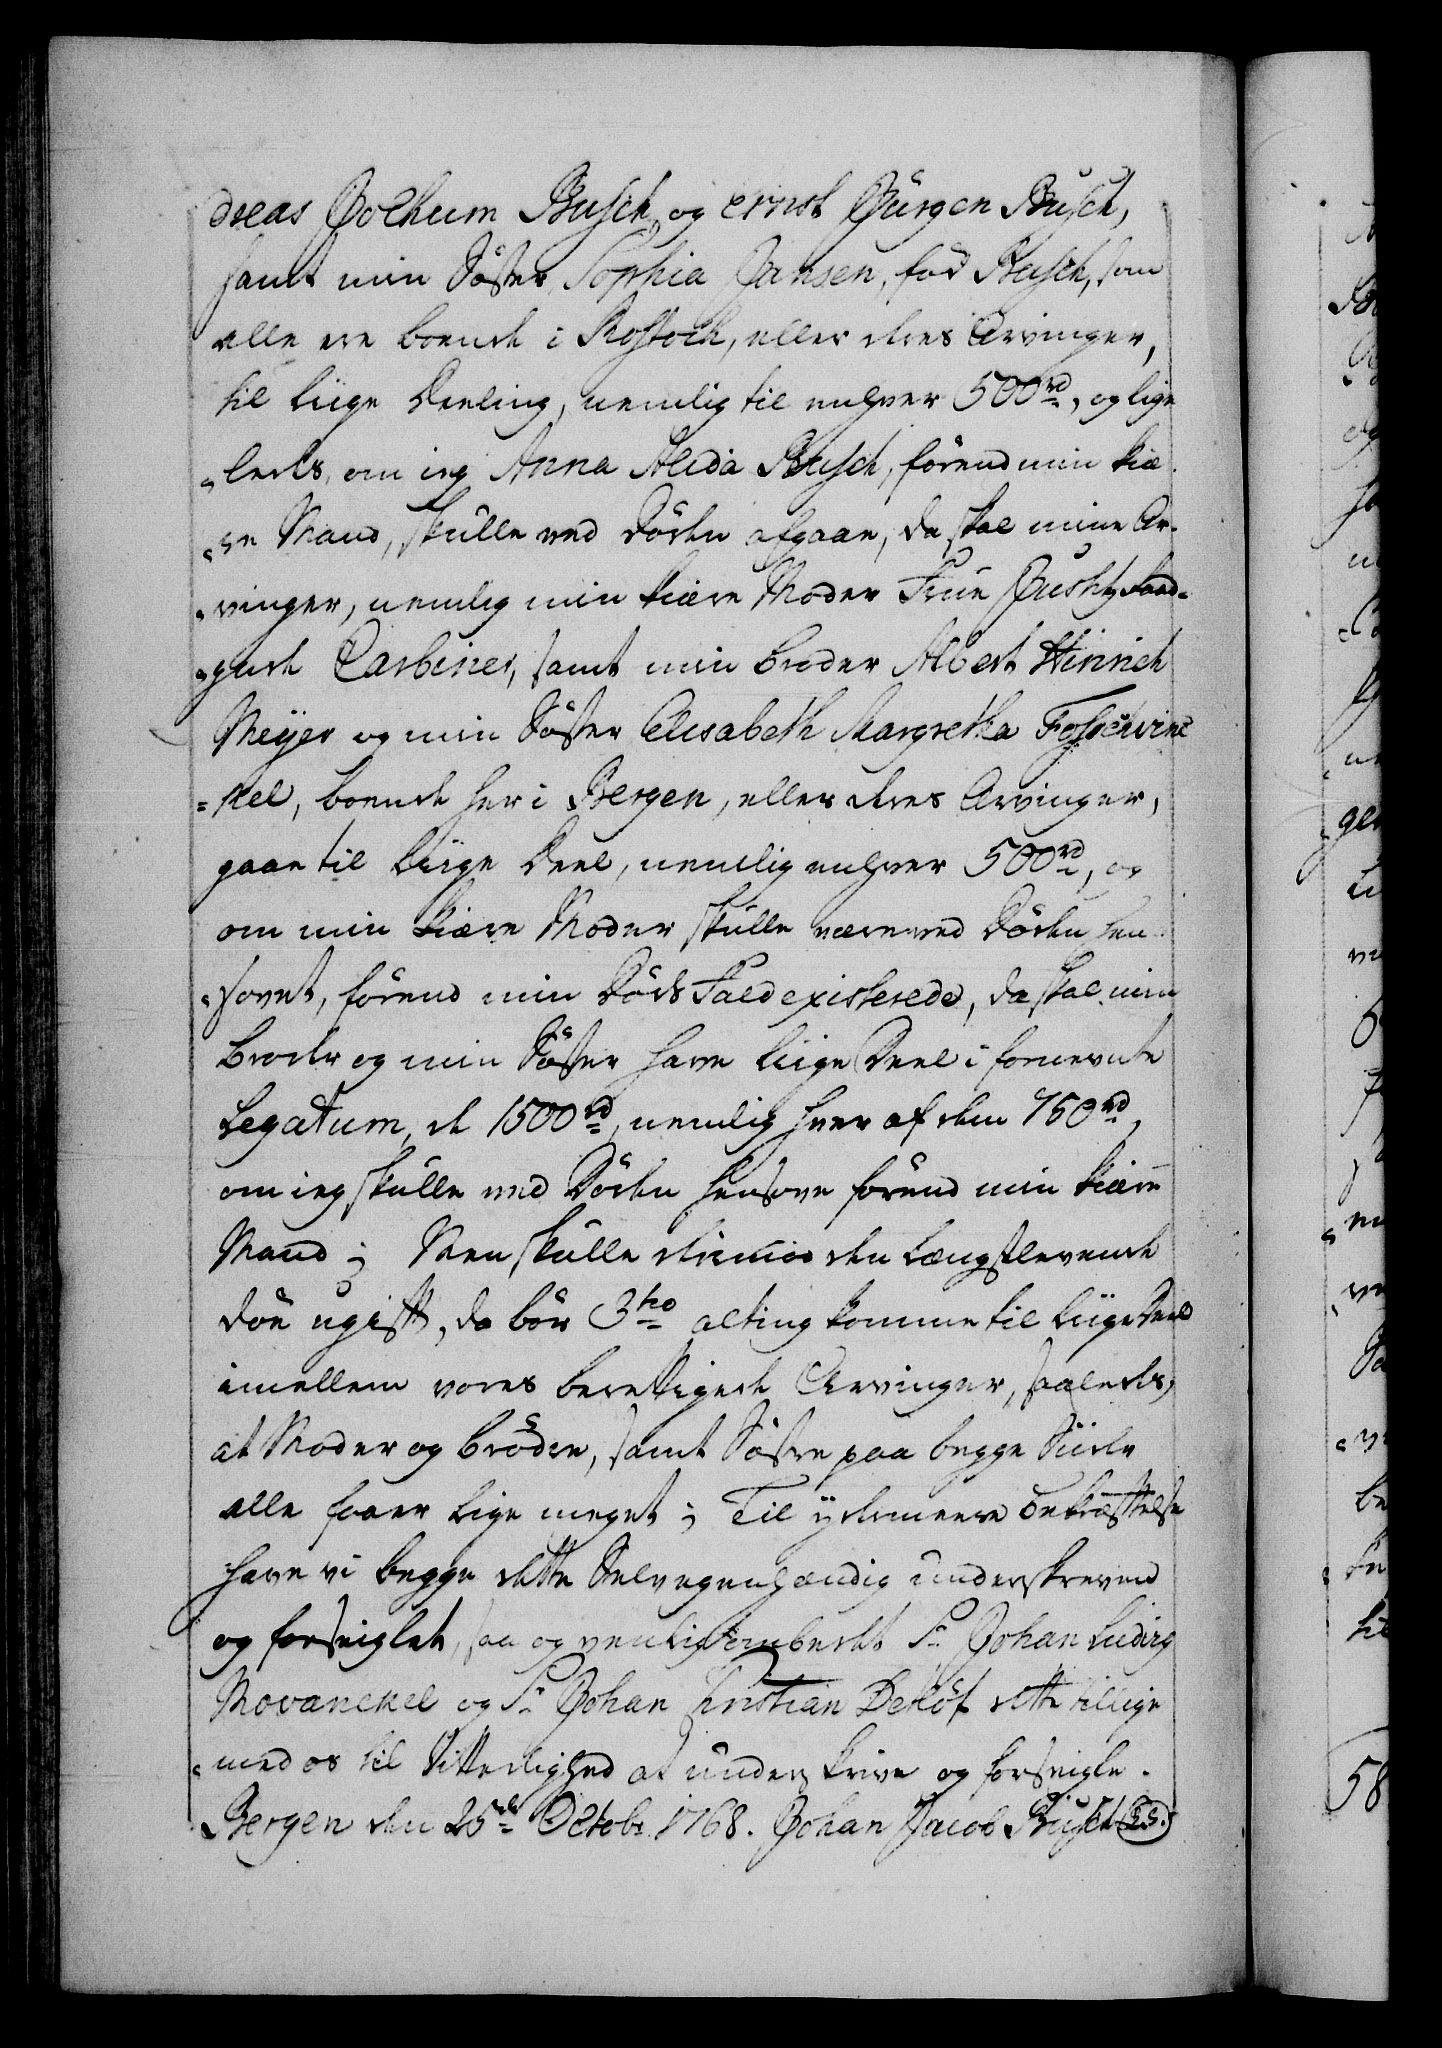 dreas Jochum Busch, og Ernst Jürgen Busch,
samt min Söster Sophia Jansen, föd Busch, som
alle ere boende i Rostock, eller deres Arvinger,
til liige Deeling, nemlig til enhver 500 rd, og lige
„ledes, om jeg Anna Alida Busch, förend min kiæ
„re Mand, skulle ved Döden afgaae, da skal mine Ar-
„vinger, nemlig min kiære Moder Frue
Carbiner, samt min broder Albert Hinrich
Meÿer og min Söster Elisabeth Margretha
=kel, boende her i Bergen, eller deres Arvinger,
gaae til liige Deel, nemlig enhver 500 rd, og
om min kiære Moder skulle være ved Döden hen
„sovet, förend min Döds Fald existerede, da skal min
broder og min Söster have liige Deel i fornevnte
Legatum, de 1500 rd, nemlig hver af dem 750 rd,
om jeg skulle ved Döden hensove förend min kiære
Mand; Men skulle derimod den Længstlevende
döe ugift, da bör 3tio alting komme til liige Deel
imellem vores berettigede Arvinger, saaledes,
at Moder og brödre, samt Söstre paa begge Siider
alle faaer lige meget; Til ÿdermeere bekræftelse
have vi begge dette Selvegenhændig underskreven
og forseiglet, saa og venlig ombedet Sr. Johan Ludvig
Movanckel og Sr. Johan Christian Detlöf dette tillige
„med os til Vitterlighed at underskrive og forseigle.
Bergen den 25de Octobr. 1768. Johan Jacob Busch (L.S.)
58